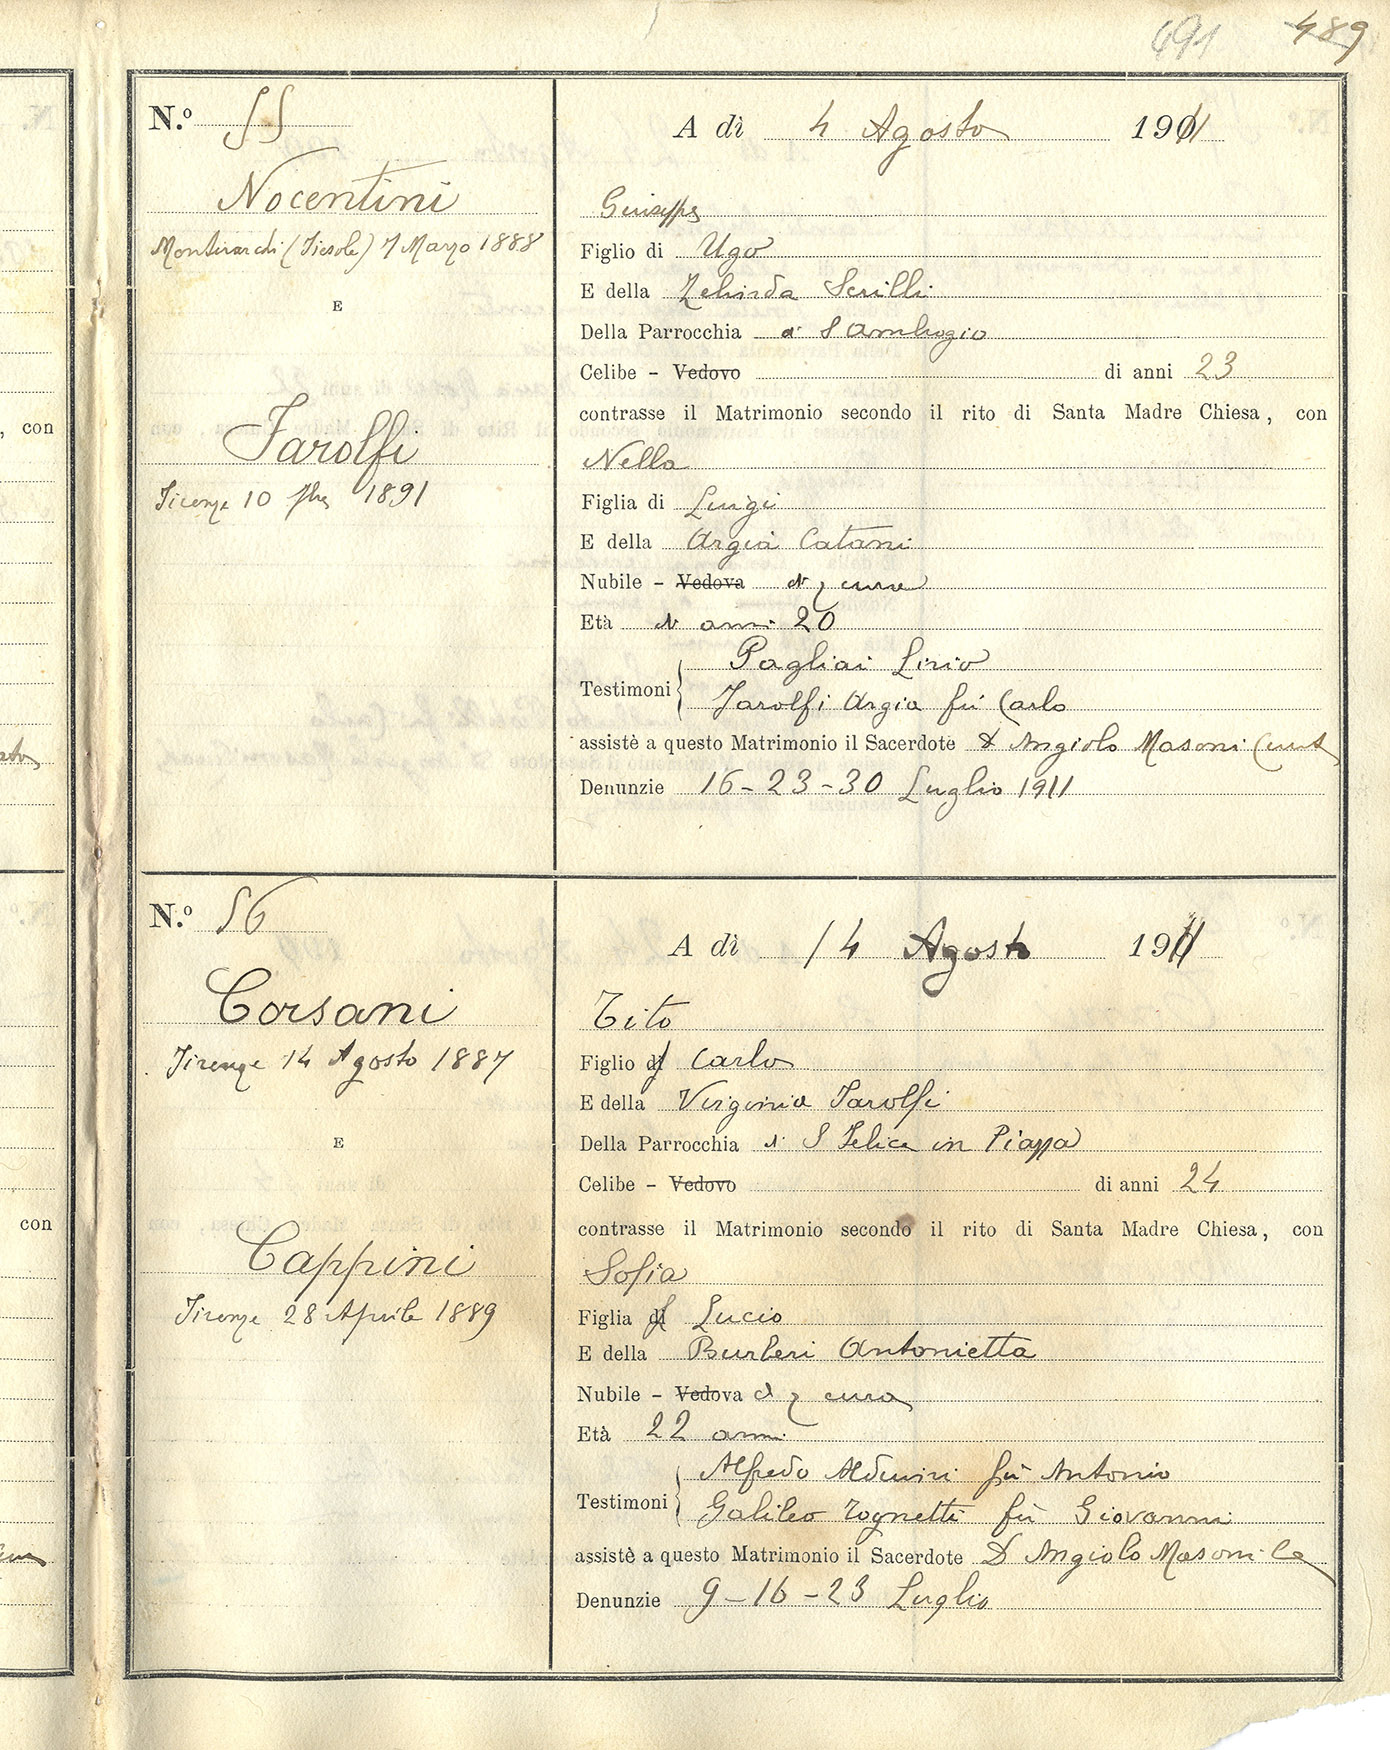 491 489
N.º 55
A dì 4 Agosto 1911
Nocentini
Giuseppe
Montirardi (Fiesole) 7 Marzo 1888
Figlio di Ugo
E
E della Zelinda Scrilli
Della Parrocchia di S Ambrogio
Celibe - Vedovo di anni 23
contrasse il Matrimonio secondo il rito di Santa Madre Chiesa, con
, con
Farolfi
Nella
Firenze 10 1891
Figlia di Luigi
E della Argia Catani
Nubile - Vedova di q cura
Età di anni 20
Testimoni Pagliai Lirio
Farolfi Argia fu Carlo
assistè a questo Matrimonio il Sacerdote D Angiolo Masoni Curato
Denunzie 16-23-30 Luglio 1911
N.º 56
A dì 14 Agosto 1911
Corsani
Tito
Firenze 14 Agosto 1887
Figlio di Carlo
E
E della Virginia Farolfi
Della Parrocchia di S Felice in Piazza
Celibe - Vedovo di anni 24
contrasse il Matrimonio secondo il rito di Santa Madre Chiesa, con
con
Cappini
Sofia
Firenze 28 Aprile 1889
Figlia di Lucio
E della Burberi Antonietta
Nubile - Vedova di q cura
Età 22 anni
Testimoni Alfredo Alduini fu Antonio
Galileo Tognetti fu Giovanni
assistè a questo Matrimonio il Sacerdote D Angiolo Masoni
Denunzie 9-16-23 Luglio